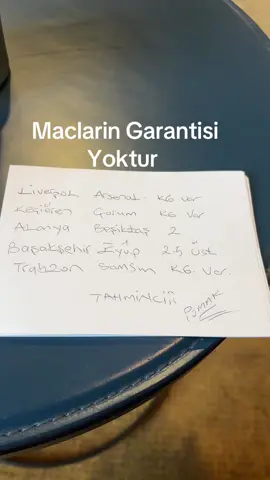 Maclarin Garantisi
Yoktur
Liverpol Arsenal. KG Var
Keçiören Çorum KG Var
Alanya Beşiktaş 2
Başakşehir Eyüp 2.5 Üst
Trabzon Samsun KG. Var.
TAHMİNCİJİ